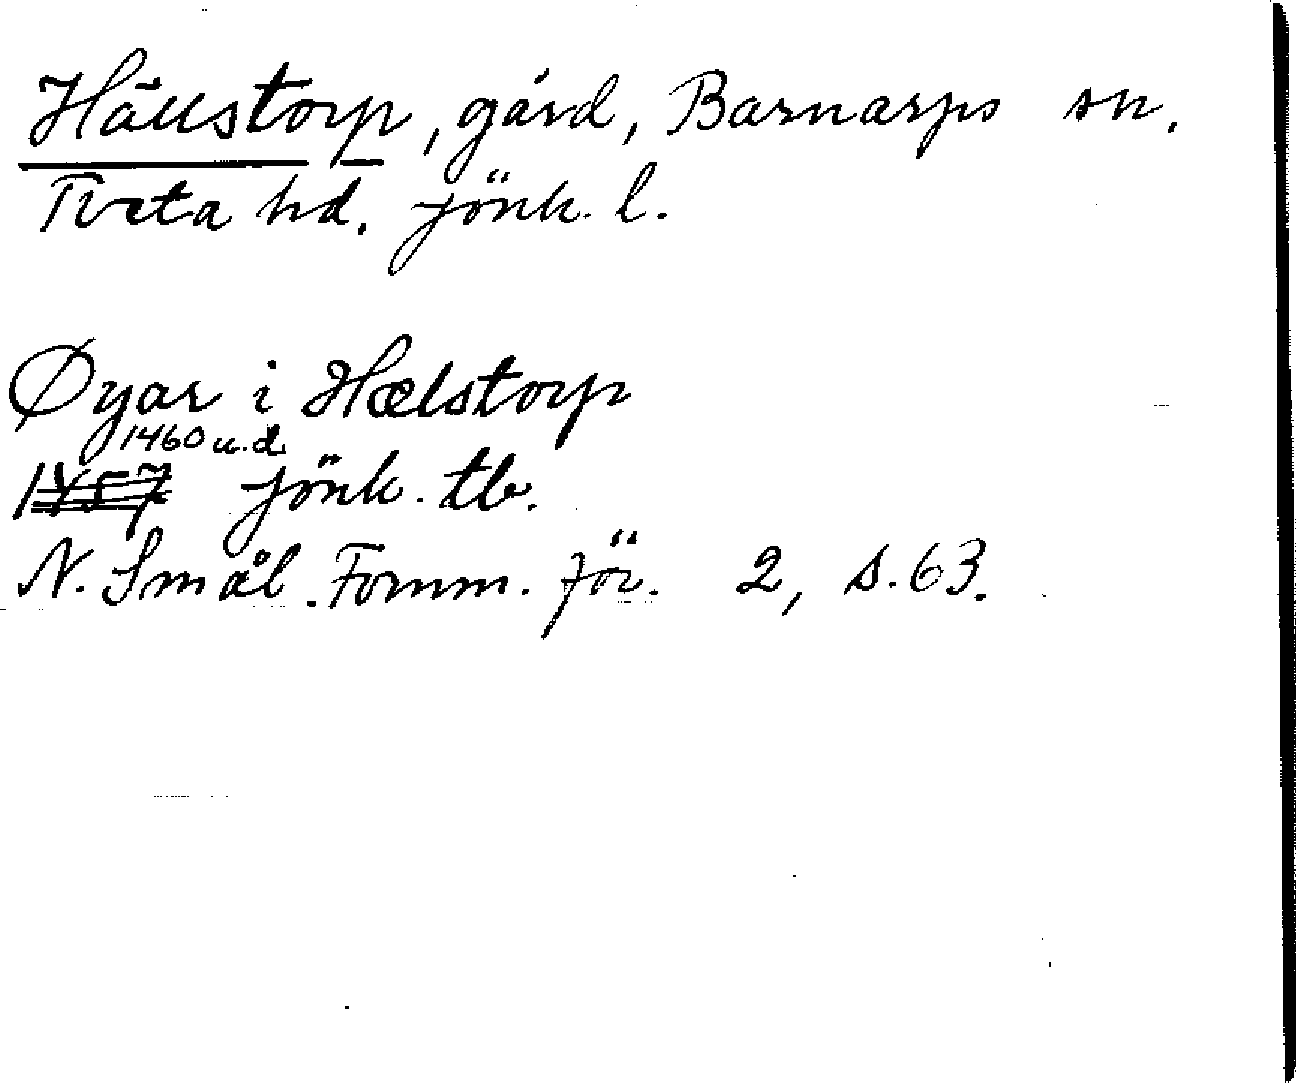 Hällstorp, gård, Barnarps sn.
Tveta hd. Jönk. l.
Øyar i Hælstorp
1460 u.d.
1457 Jönk. tb.
N. Smål. Fornm. för. 2, s. 63.